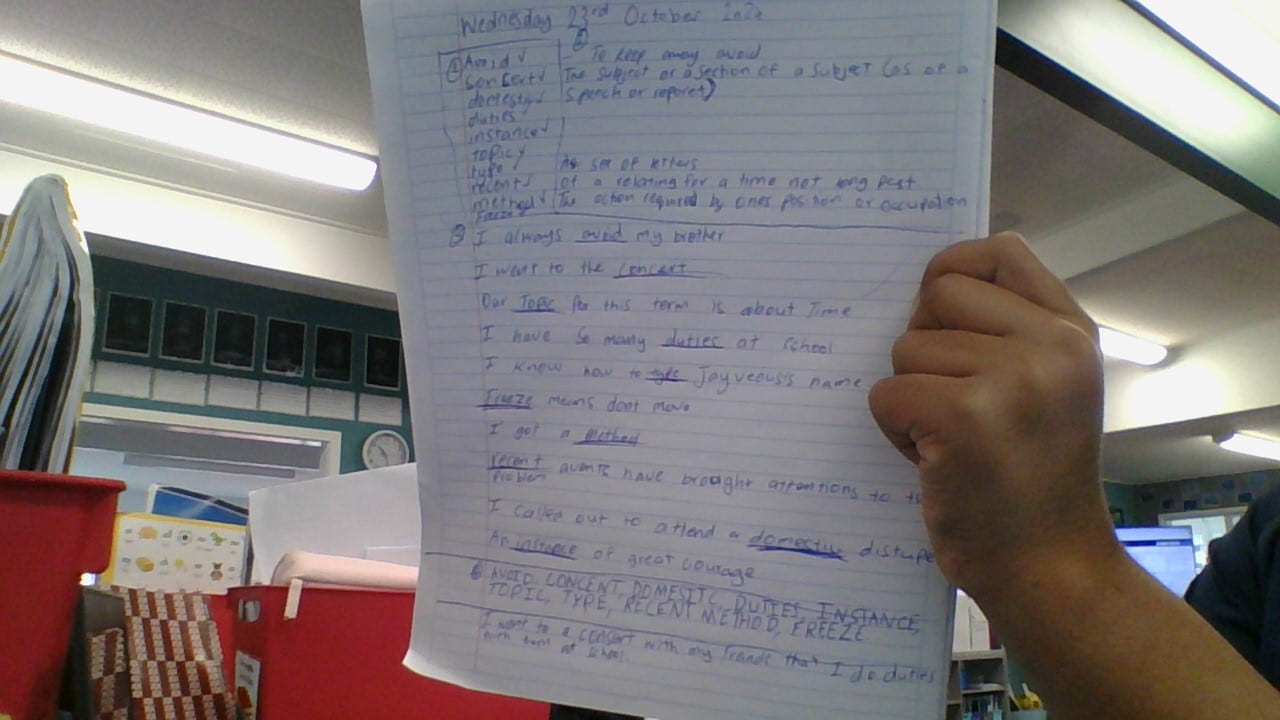 Wednesday 23rd October
① Avoid ✓
Concert ✓
domestic ✓
duties
instance ✓
topic ✓
type
recent ✓
method ✓
Freeze
②
- To keep away avoid
The subject or a section of a subject (as of a
speech or report)
As set of letters
of a relating for a time not long past
The action required by ones position or occupation
③ I always avoid my brother
I went to the concert
Our Topic for this term is about Time
I have so many duties at school
I know how to type Jayveousis name
Freeze means dont move
I got a method
recent avents have brought attentions to th
problem
I called out to attend a domestic distupe
An instance of great courage
④ AVOID, CONCENT, DOMESITC, DUTIES, INSTANCE,
TOPIC, TYPE, RECENT METHOD, FREEZE
I went to a consert with my friends that I do duties
with them at school.